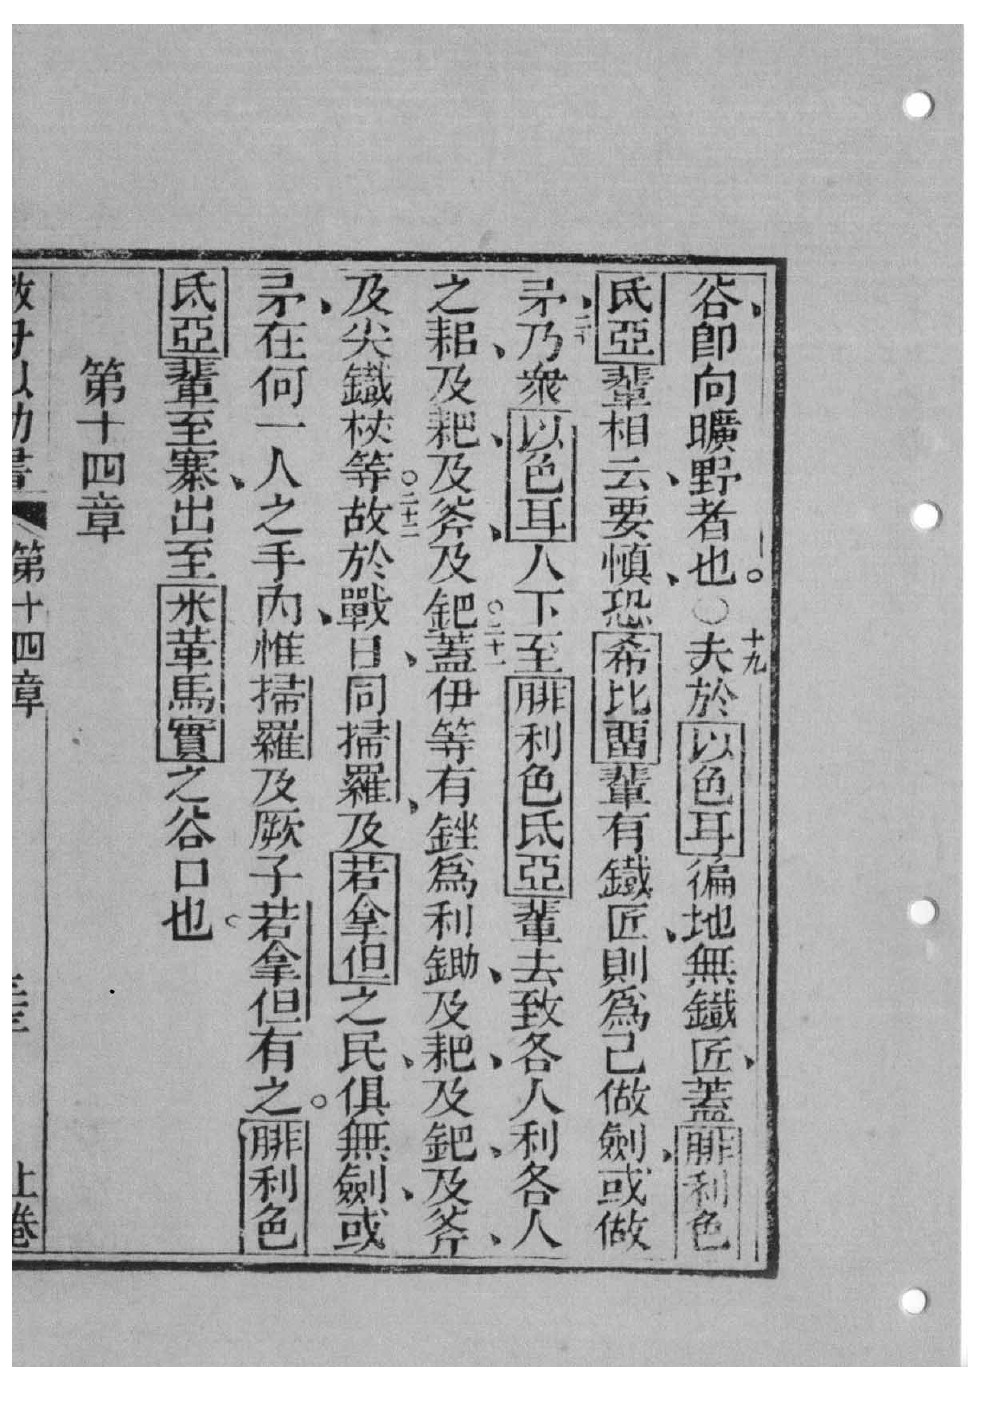 谷、卽向曠野者也。〇十九夫於以色耳徧地無鐵匠、葢腓利色
氐亞輩相云、要愼、恐希比畱輩有鐵匠、則爲己做劍、或做
矛、二十乃衆以色耳人下至腓利色氐亞輩去致各人利各人
之耜、及耙、及斧、及鈀。二十一葢伊等有銼爲利鋤、及耙、及鈀、及斧、
及尖鐵杖等。二十二故於戰日、同掃羅、及若拿但之民、俱無劍、或
矛、在何一人之手內、惟掃羅及厥子若拿但有之。腓利色
氐亞輩至寨、出至米革馬實之谷口也。
第十四章
第十四章
上卷